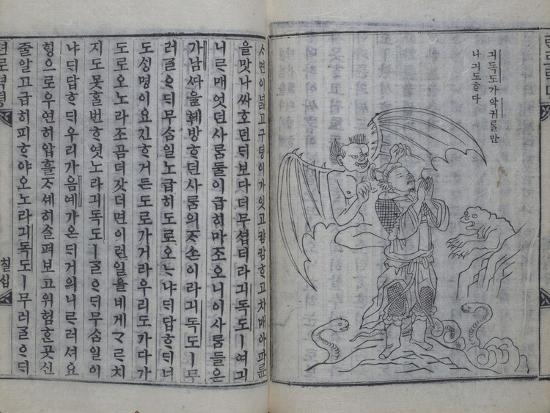 긔독도가악귀를만
나긔도ᄒᆞ다
서면이넓고구덩이가잇고캄캄ᄒᆞ고차매아파륜
을맛나싸호던ᄃᆡ보다더무셥더라긔독도ㅣ여긔
니르매엇던사ᄅᆞᆷ둘이급히마조오니이사ᄅᆞᆷ들은
가남싸을훼방ᄒᆞ던사ᄅᆞᆷ의ᄌᆞ손이라긔독도ㅣ무
러ᄀᆞᆯᄋᆞᄃᆡ무ᄉᆞᆷ일노급히도로오ᄂᆞ냐ᄃᆡ답ᄒᆞᄃᆡ너
도셩명이요긴ᄒᆞ거든도로가거라우리도가다가
도로오노라조곰더갓더면이런일을네게ᄀᆞᄅᆞ치
지도못ᄒᆞᆯ번ᄒᆞ엿노라긔독도ㅣᄀᆞᆯᄋᆞᄃᆡ무ᄉᆞᆷ일이
냐ᄃᆡ답ᄒᆞᄃᆡ우리가음예가온ᄃᆡ거의니르러셔요
ᄒᆡᆼ으로우연히압흘ᄌᆞ셰히ᄉᆞᆲ펴보고위험ᄒᆞᆫ곳신
줄알고급히피ᄒᆞ야오노라긔독도ㅣ무러ᄀᆞᆯᄋᆞᄃᆡ
텬로력뎡 칠십